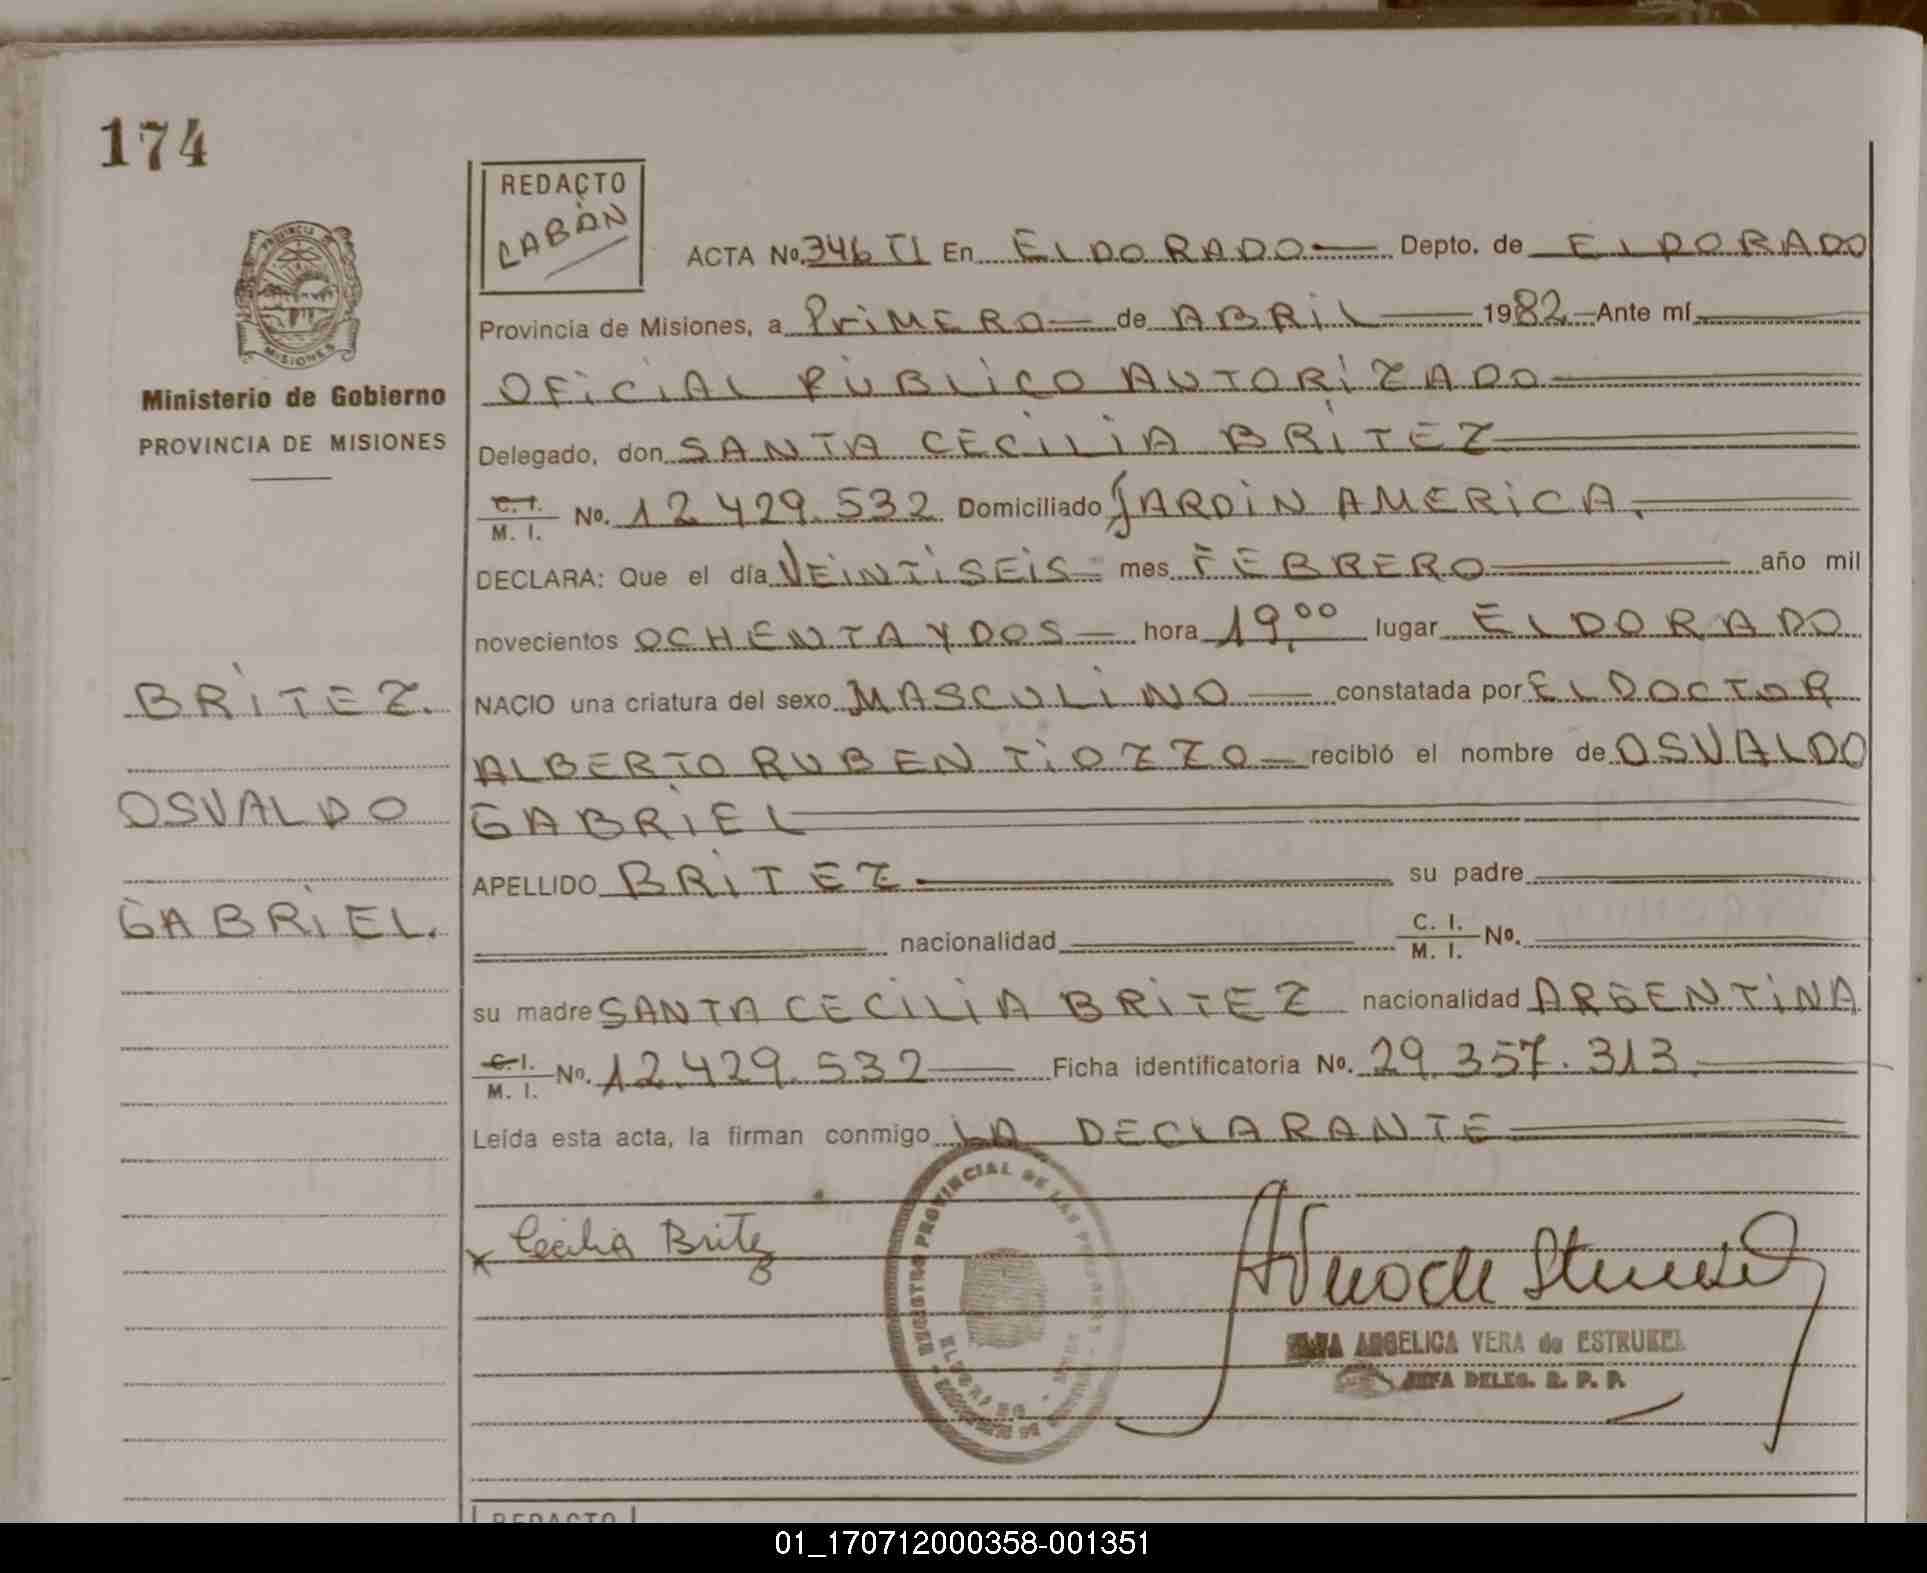 174
REDACTO
LABÁN
PROVINCIA DE
MISIONES
Ministerio de Gobierno
PROVINCIA DE MISIONES
ACTA Nº. 346 TI En ELDORADO Depto. de ELDORADO
Provincia de Misiones, a PRIMERO de ABRIL 1982 Ante mí
OFICIAL PUBLICO AUTORIZADO
Delegado, don SANTA CECILIA BRITEZ
C. I. M. I. Nº. 12.429.532 Domiciliado JARDIN AMERICA.
DECLARA: Que el día VEINTISEIS mes FEBRERO año mil
novecientos OCHENTA Y DOS hora 19,00 lugar ELDORADO
BRITEZ.
NACIO una criatura del sexo MASCULINO constatada por EL DOCTOR
ALBERTO RUBEN TIOZZO recibió el nombre de OSVALDO
OSVALDO
GABRIEL
APELLIDO BRITEZ su padre
GABRIEL.
nacionalidad C. I. M. I. Nº.
su madre SANTA CECILIA BRITEZ nacionalidad ARGENTINA
C. I. M. I. Nº. 12.429.532 Ficha identificatoria Nº. 29.357.313
Leída esta acta, la firman conmigo LA DECLARANTE
REGISTRO PROVINCIAL DE LAS PERSONAS
x Cecilia Britez
ANGELICA VERA de ESTRUBEL
JEFA DELEG. R. P. P.
REDACTO
01_170712000358-001351